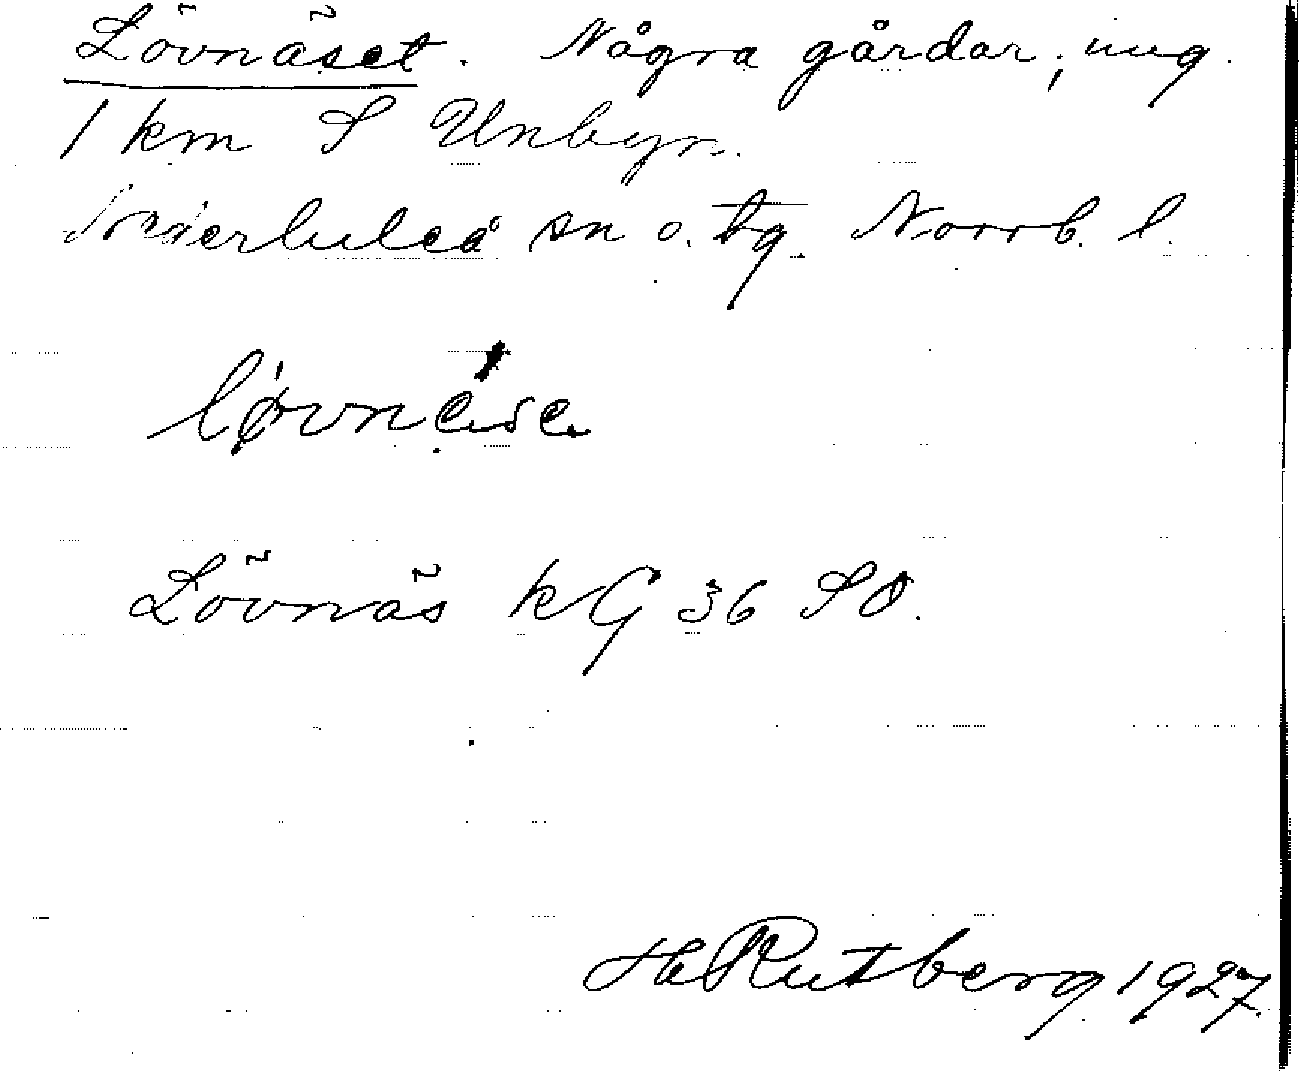 Lövnäset. Några gårdar, ung.
1 km S Unbyn.
Nederluleå sn o. tg. Norrb. l.
Lövnäs kG 36 SO.
H Rutberg 1927.